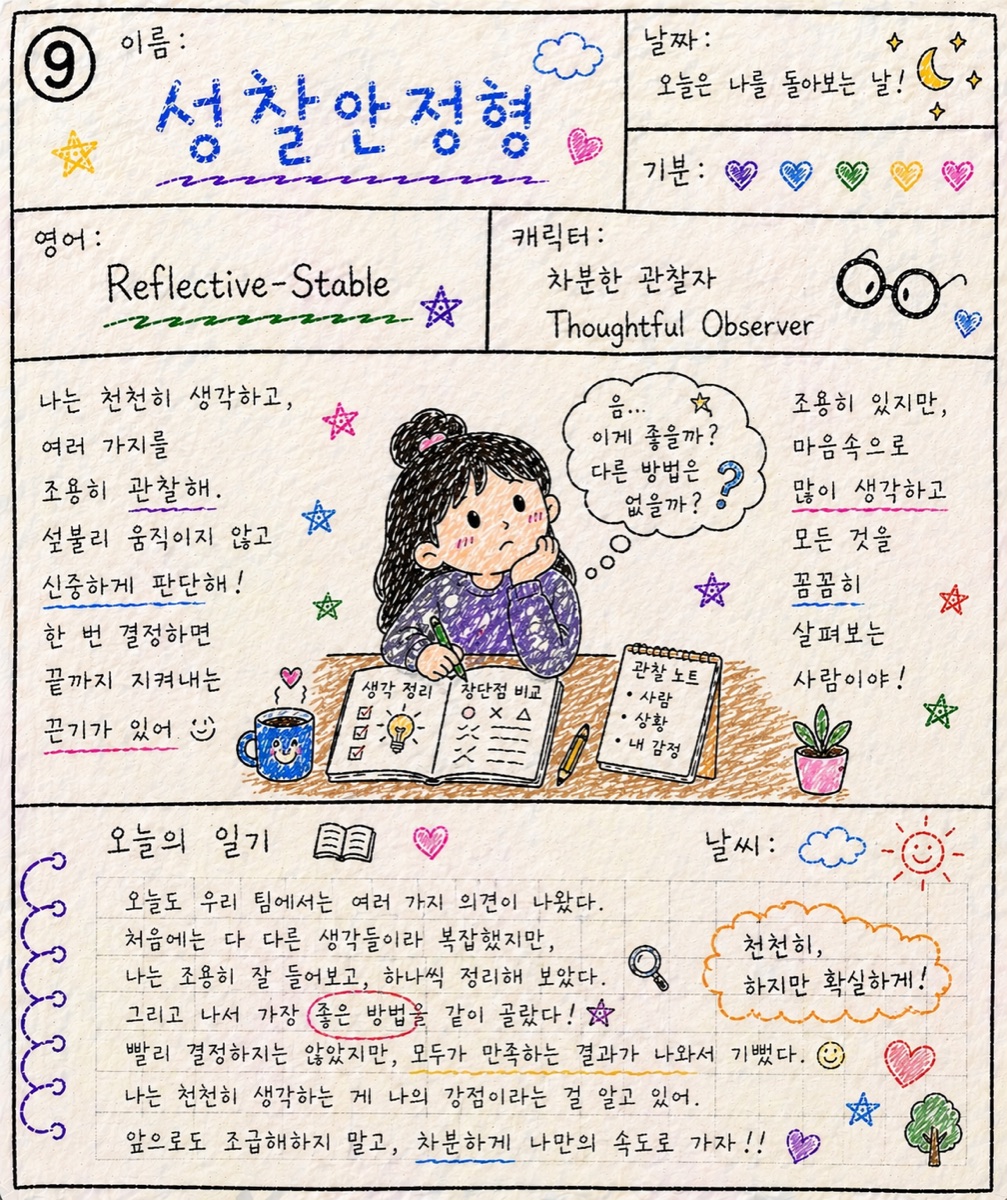 9
이름:
성찰안정형
날짜:
오늘은 나를 돌아보는 날!
기분:
영어:
Reflective-Stable
캐릭터:
차분한 관찰자
Thoughtful Observer
나는 천천히 생각하고,
여러 가지를
조용히 관찰해.
섣불리 움직이지 않고
신중하게 판단해!
한 번 결정하면
끝까지 지켜내는
끈기가 있어
음...
이게 좋을까?
다른 방법은
없을까?
?
생각 정리
장단점 비교
관찰 노트
• 사람
• 상황
• 내 감정
조용히 있지만,
마음속으로
많이 생각하고
모든 것을
꼼꼼히
살펴보는
사람이야!
오늘의 일기
날씨:
오늘도 우리 팀에서는 여러 가지 의견이 나왔다.
처음에는 다 다른 생각들이라 복잡했지만,
나는 조용히 잘 들어보고, 하나씩 정리해 보았다.
그리고 나서 가장 좋은 방법을 같이 골랐다!
빨리 결정하지는 않았지만, 모두가 만족하는 결과가 나와서 기뻤다.
나는 천천히 생각하는 게 나의 강점이라는 걸 알고 있어.
앞으로도 조급해하지 말고, 차분하게 나만의 속도로 가자!!
천천히,
하지만 확실하게!